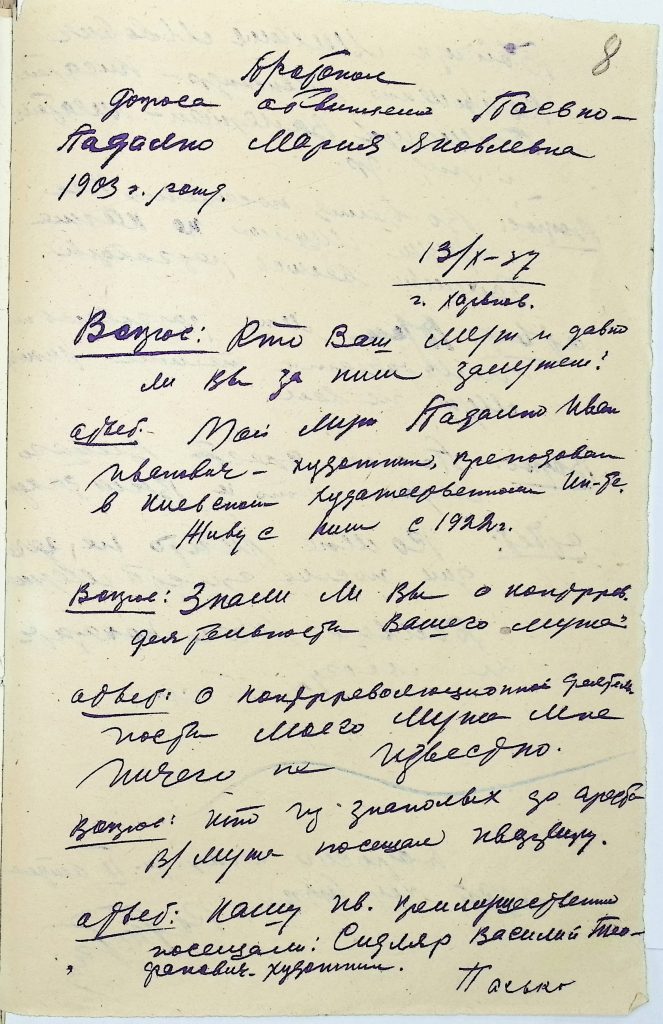 8
Протокол
допроса обвиняемой Паевко-
Падалко Мария Яковлевна
1903 г. рожд.
13/X-37
г. Харьков.
Вопрос: Кто Ваш муж и давно
ли Вы за ним замужем?
ответ. Мой муж Падалко Иван
Иванович – художник, преподавал
в Киевском художественном Ин-те.
Живу с ним с 1922 г.
Вопрос: Знали ли Вы о контррев.
деятельности Вашего мужа?
ответ: о контрреволюционной деятель
ности моего мужа мне
ничего не известно.
Вопрос: Кто из знакомых до ареста
В/мужа посещал квартиру.
ответ: нашу кв. преимущественно
посещали: Сидляр Василий Тео-
фанович – художник.
Паевко